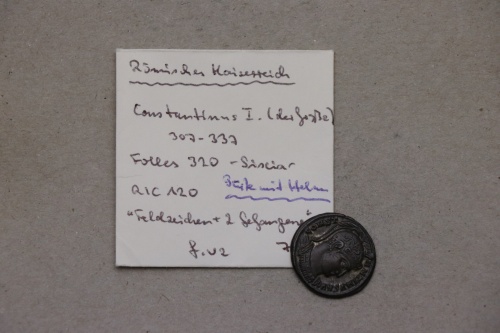 Römisches Kaiserreich
Constantinus I. (der Große)
307-337
Folles 320 - Siscia
RIC 120 Büste mit Helm
"Feldzeichen + 2 Gefangene"
f. vz